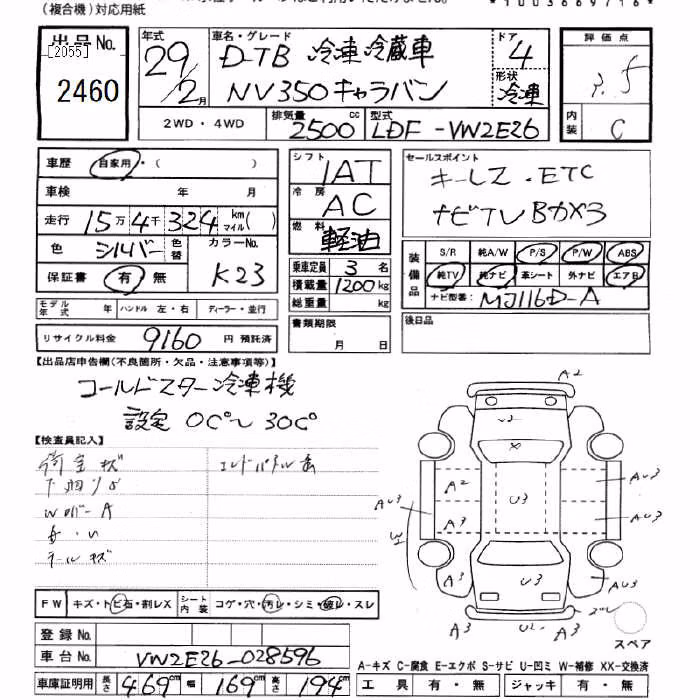 (複合機)対応用紙
*1003669716*
出品No.
[2055]
2460
年式
29/2月
車名・グレード
D-TB 冷凍冷蔵車
NV350キャラバン
ドア
4
形状
冷凍
評価点
3.5
内装
C
2WD・4WD
排気量
2500cc
型式
LDF-VW2E26
車歴
自家用・( )
車検 年 月
走行 15万4千324 km マイル( )
色 シルバー 色替
カラーNo.
K23
保証書 有・無
モデル年式 年 ハンドル 左・右 ディーラー・並行
リサイクル料金 9160 円 預託済
シフト
1AT
冷房
AC
燃料
軽油
乗車定員 3名
積載量 1200kg
総重量 kg
書類期限
月 日
セールスポイント
キーレス・ETC
ナビTV Bカメラ
装備品
S/R 純A/W P/S P/W ABS
純TV 純ナビ 革シート 外ナビ エアB
ナビ型番: MJ116D-A
後日品
【出品店申告欄(不良箇所・欠品・注意事項等)】
コールドスター冷凍機
設定 0C°~30C°
【検査員記入】
荷室キズ
テールキズ
FW キズ・トビ石・割レX
シート内装 コゲ・穴・汚レ・シミ・破レ・スレ
登録No.
車台No. VW2E26-028596
車庫証明用 長さ 469cm 幅 169cm 高さ 194cm
A2
A2
U3
A3
AU3
AU3
AU3
A3
U3
AU3
A3
A3
スペア
A-キズ C-腐食 E-エクボ S-サビ U-凹ミ W-補修 XX-交換済
工具 有・無 ジャッキ 有・無